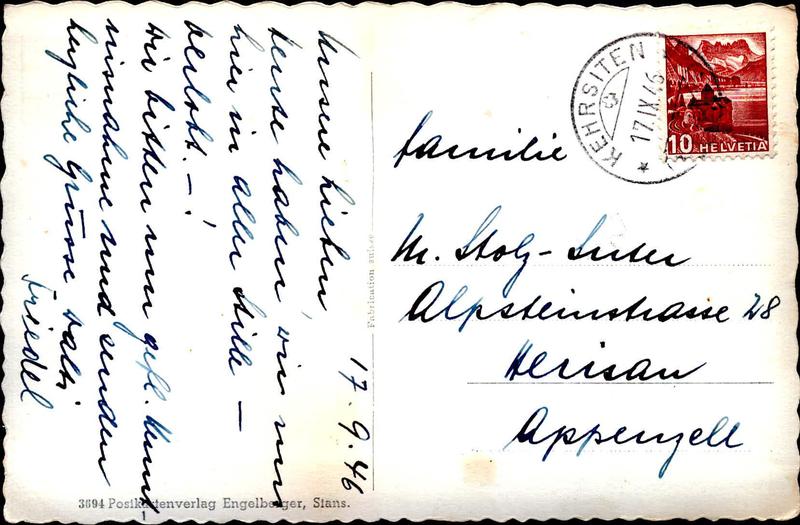 17. 9. 46
Unsere Lieben,
Heute haben wir uns
hier in aller Stille —
verlobt. — !
Wir bitten um gefl. Kennt-
nisnahme und senden
herzliche Grüsse
Friedel
Familie
M. Stolz-Suter
Alpsteinstrasse 28
Herisau
Appenzell
KEHRSITEN
17.IX.46
10 HELVETIA
Fabrication suisse
3694 Postkartenverlag Engelberger, Stans.